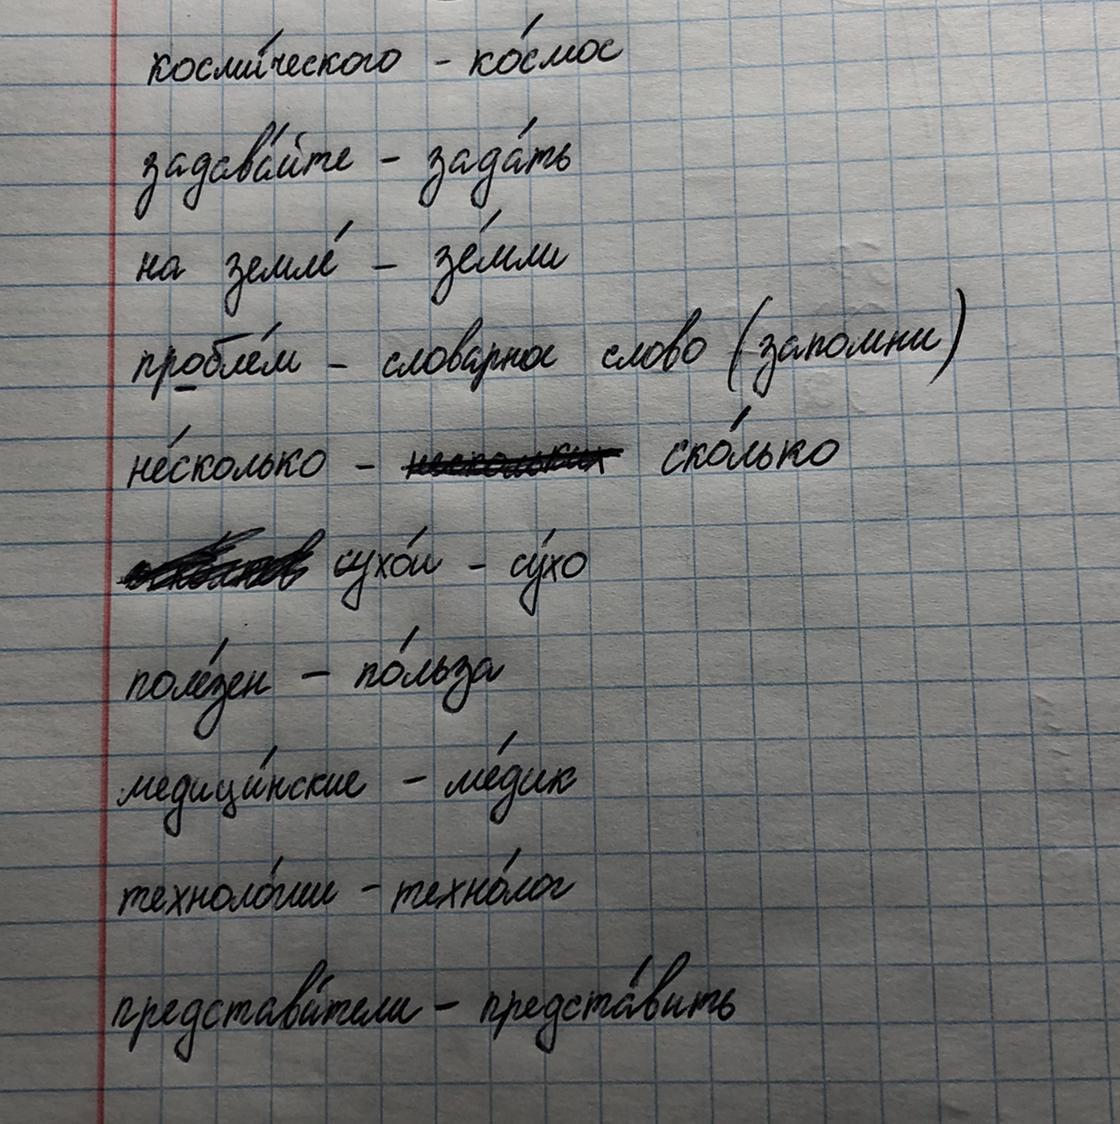 косми́ческого - ко́смос
задава́йте - зада́ть
на земле́ - зе́мли
пробле́м - словарное слово (запомни)
не́сколько - ско́лько
сухо́и - су́хо
поле́зен - по́льза
медици́нские - ме́дик
техноло́гии - техно́лог
представа́тели - предста́вить